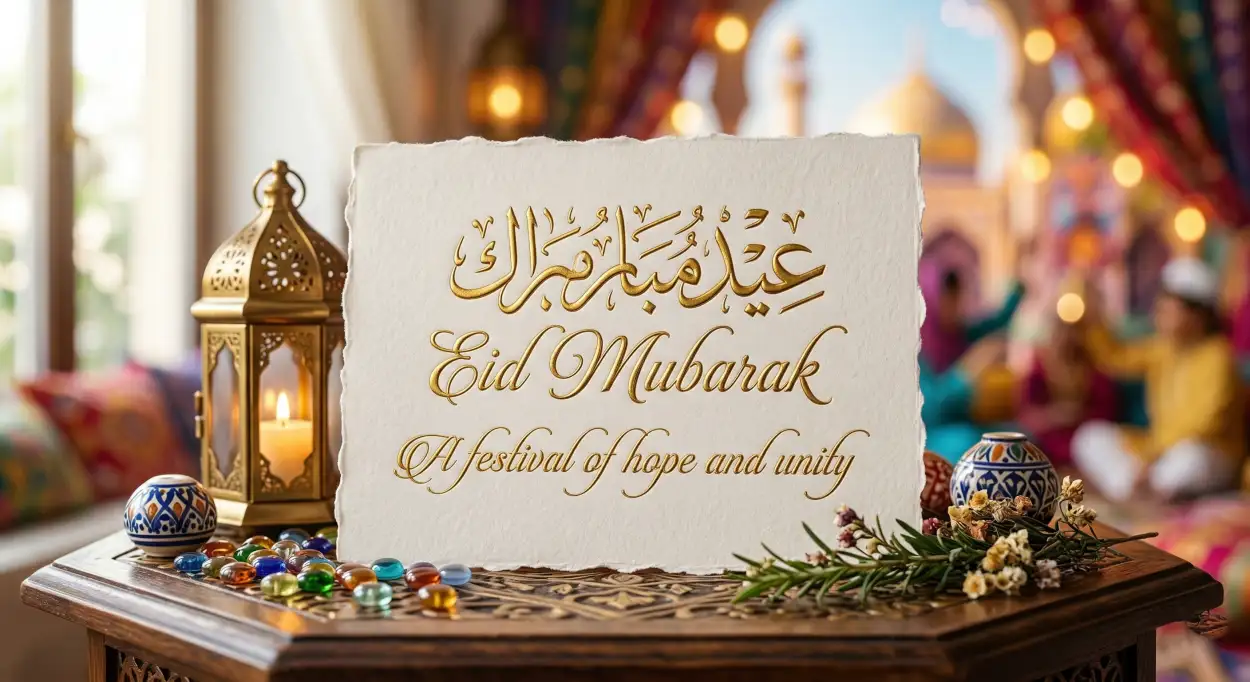 عِيْدْ مُبَارمَراك
Eid Mubarak
A festival of hope and unity